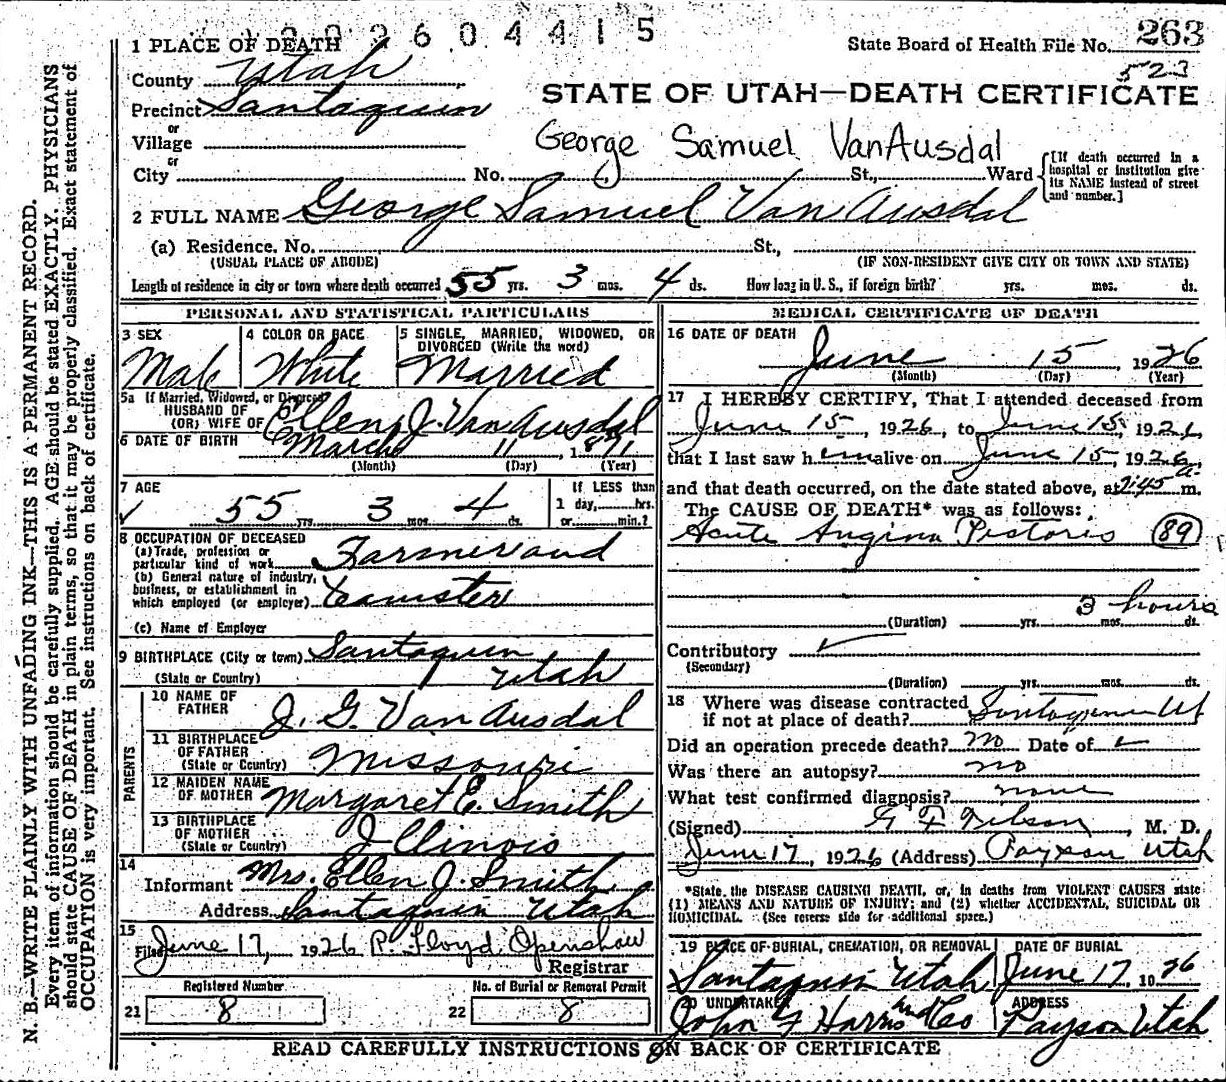 2604415
1 PLACE OF DEATH
State Board of Health File No. 263
County Utah
523
Precinct Santaquin
STATE OF UTAH—DEATH CERTIFICATE
or
Village
George Samuel VanAusdal
or
City No. St., Ward
[If death occurred in a hospital or institution give its NAME instead of street and number.]
2 FULL NAME George Samuel Van Ausdal
(a) Residence. No. St.,
(USUAL PLACE OF ABODE) (IF NON-RESIDENT GIVE CITY OR TOWN AND STATE)
Length of residence in city or town where death occurred 55 yrs. 3 mos. 4 ds. How long in U. S., if foreign birth? yrs. mos. ds.
PERSONAL AND STATISTICAL PARTICULARS
3 SEX
Male
4 COLOR OR RACE
White
5 SINGLE, MARRIED, WIDOWED, OR DIVORCED (Write the word)
Married
5a If Married, Widowed, or Divorced
HUSBAND OF
(OR) WIFE OF Ellen J. Van Ausdal
6 DATE OF BIRTH March 11, 1871
(Month) (Day) (Year)
7 AGE
55 yrs. 3 mos. 4 ds.
If LESS than
1 day, hrs.
or min.?
8 OCCUPATION OF DECEASED
(a) Trade, profession or
particular kind of work Farmer and
(b) General nature of industry,
business, or establishment in
which employed (or employer) teamster
(c) Name of Employer
9 BIRTHPLACE (City or town) Santaquin
(State or Country) Utah
PARENTS
10 NAME OF
FATHER J. G. Van Ausdal
11 BIRTHPLACE
OF FATHER
(State or Country) Missouri
12 MAIDEN NAME
OF MOTHER Margaret E. Smith
13 BIRTHPLACE
OF MOTHER
(State or Country) Illinois
14
Informant Mrs. Ellen J. Smith
Address Santaquin Utah
15
Filed June 17, 1926 P. Floyd Openshaw
Registrar
Registered Number
21 8
No. of Burial or Removal Permit
22 8
MEDICAL CERTIFICATE OF DEATH
16 DATE OF DEATH
June 15 1926
(Month) (Day) (Year)
17 I HEREBY CERTIFY, That I attended deceased from
June 15, 1926, to June 15, 1926,
that I last saw h em alive on June 15, 1926
and that death occurred, on the date stated above, at 7:45 a. m.
The CAUSE OF DEATH* was as follows:
Acute Angina Pectoris 89
3 hours
(Duration) yrs. mos. ds.
Contributory
(Secondary)
(Duration) yrs. mos. ds.
18 Where was disease contracted
if not at place of death? Santaquin Ut
Did an operation precede death? no Date of
Was there an autopsy? no
What test confirmed diagnosis? none
(Signed), M. D.
June 17, 1926 (Address) Payson Utah
*State the DISEASE CAUSING DEATH, or, in deaths from VIOLENT CAUSES state
(1) MEANS AND NATURE OF INJURY; and (2) whether ACCIDENTAL, SUICIDAL OR
HOMICIDAL. (See reverse side for additional space.)
19 PLACE OF BURIAL, CREMATION, OR REMOVAL
Santaquin Utah
DATE OF BURIAL
June 17, 1926
20 UNDERTAKER
John F Harris Und Co
ADDRESS
Payson Utah
READ CAREFULLY INSTRUCTIONS ON BACK OF CERTIFICATE
N. B.—WRITE PLAINLY WITH UNFADING INK—THIS IS A PERMANENT RECORD.
Every item of information should be carefully supplied. AGE should be stated EXACTLY. PHYSICIANS
should state CAUSE OF DEATH in plain terms, so that it may be properly classified. Exact statement of
OCCUPATION is very important. See instructions on back of certificate.